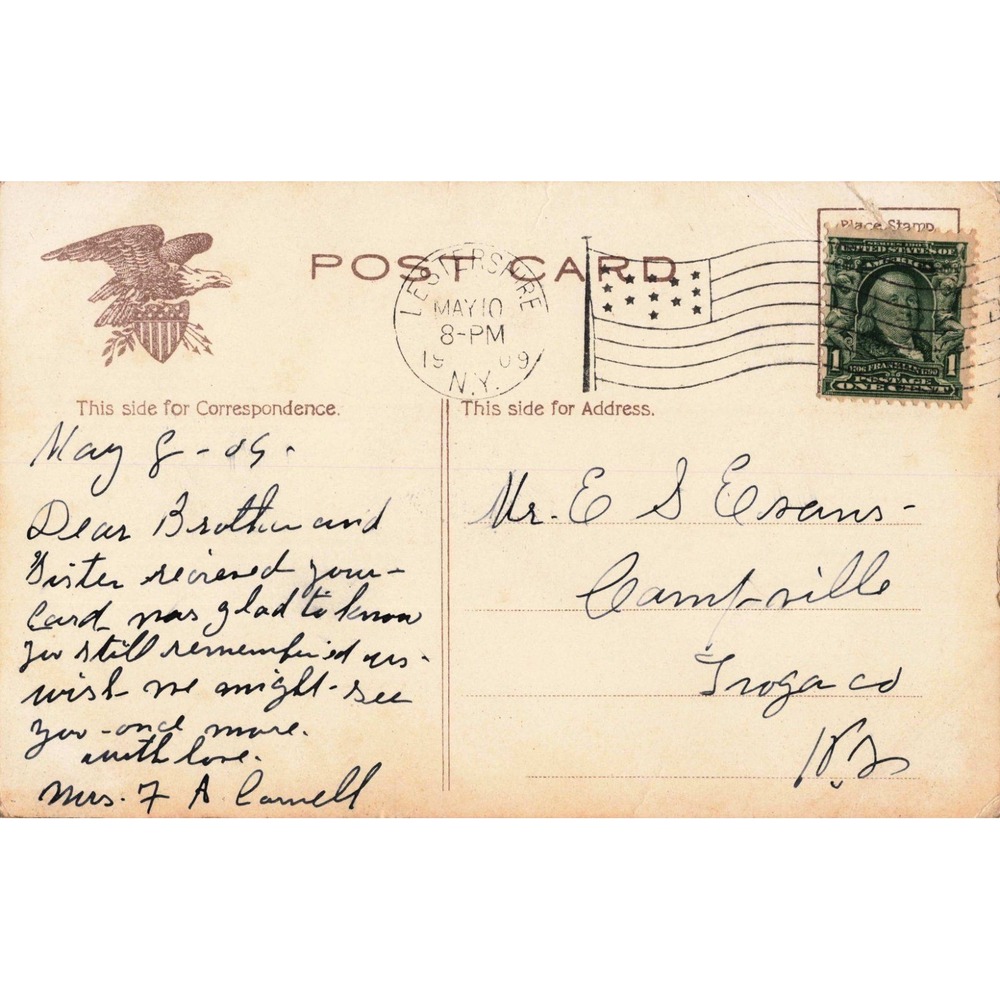 POST CARD
LESTERSHIRE
MAY 10
8-PM
1909
N.Y.
Place Stamp
SERIES 1902
UNITED STATES OF
AMERICA
1 1
1706 FRANKLIN 1790
POSTAGE
ONE CENT
This side for Correspondence.
May 8-09.
Dear Brother and
Sister recieved your
Card was glad to know
you still remembered us.
wish we might see
you once more.
with love.
Mrs. F A
This side for Address.
Mr. E S Evans
Campville
Tioga co
N.Y.